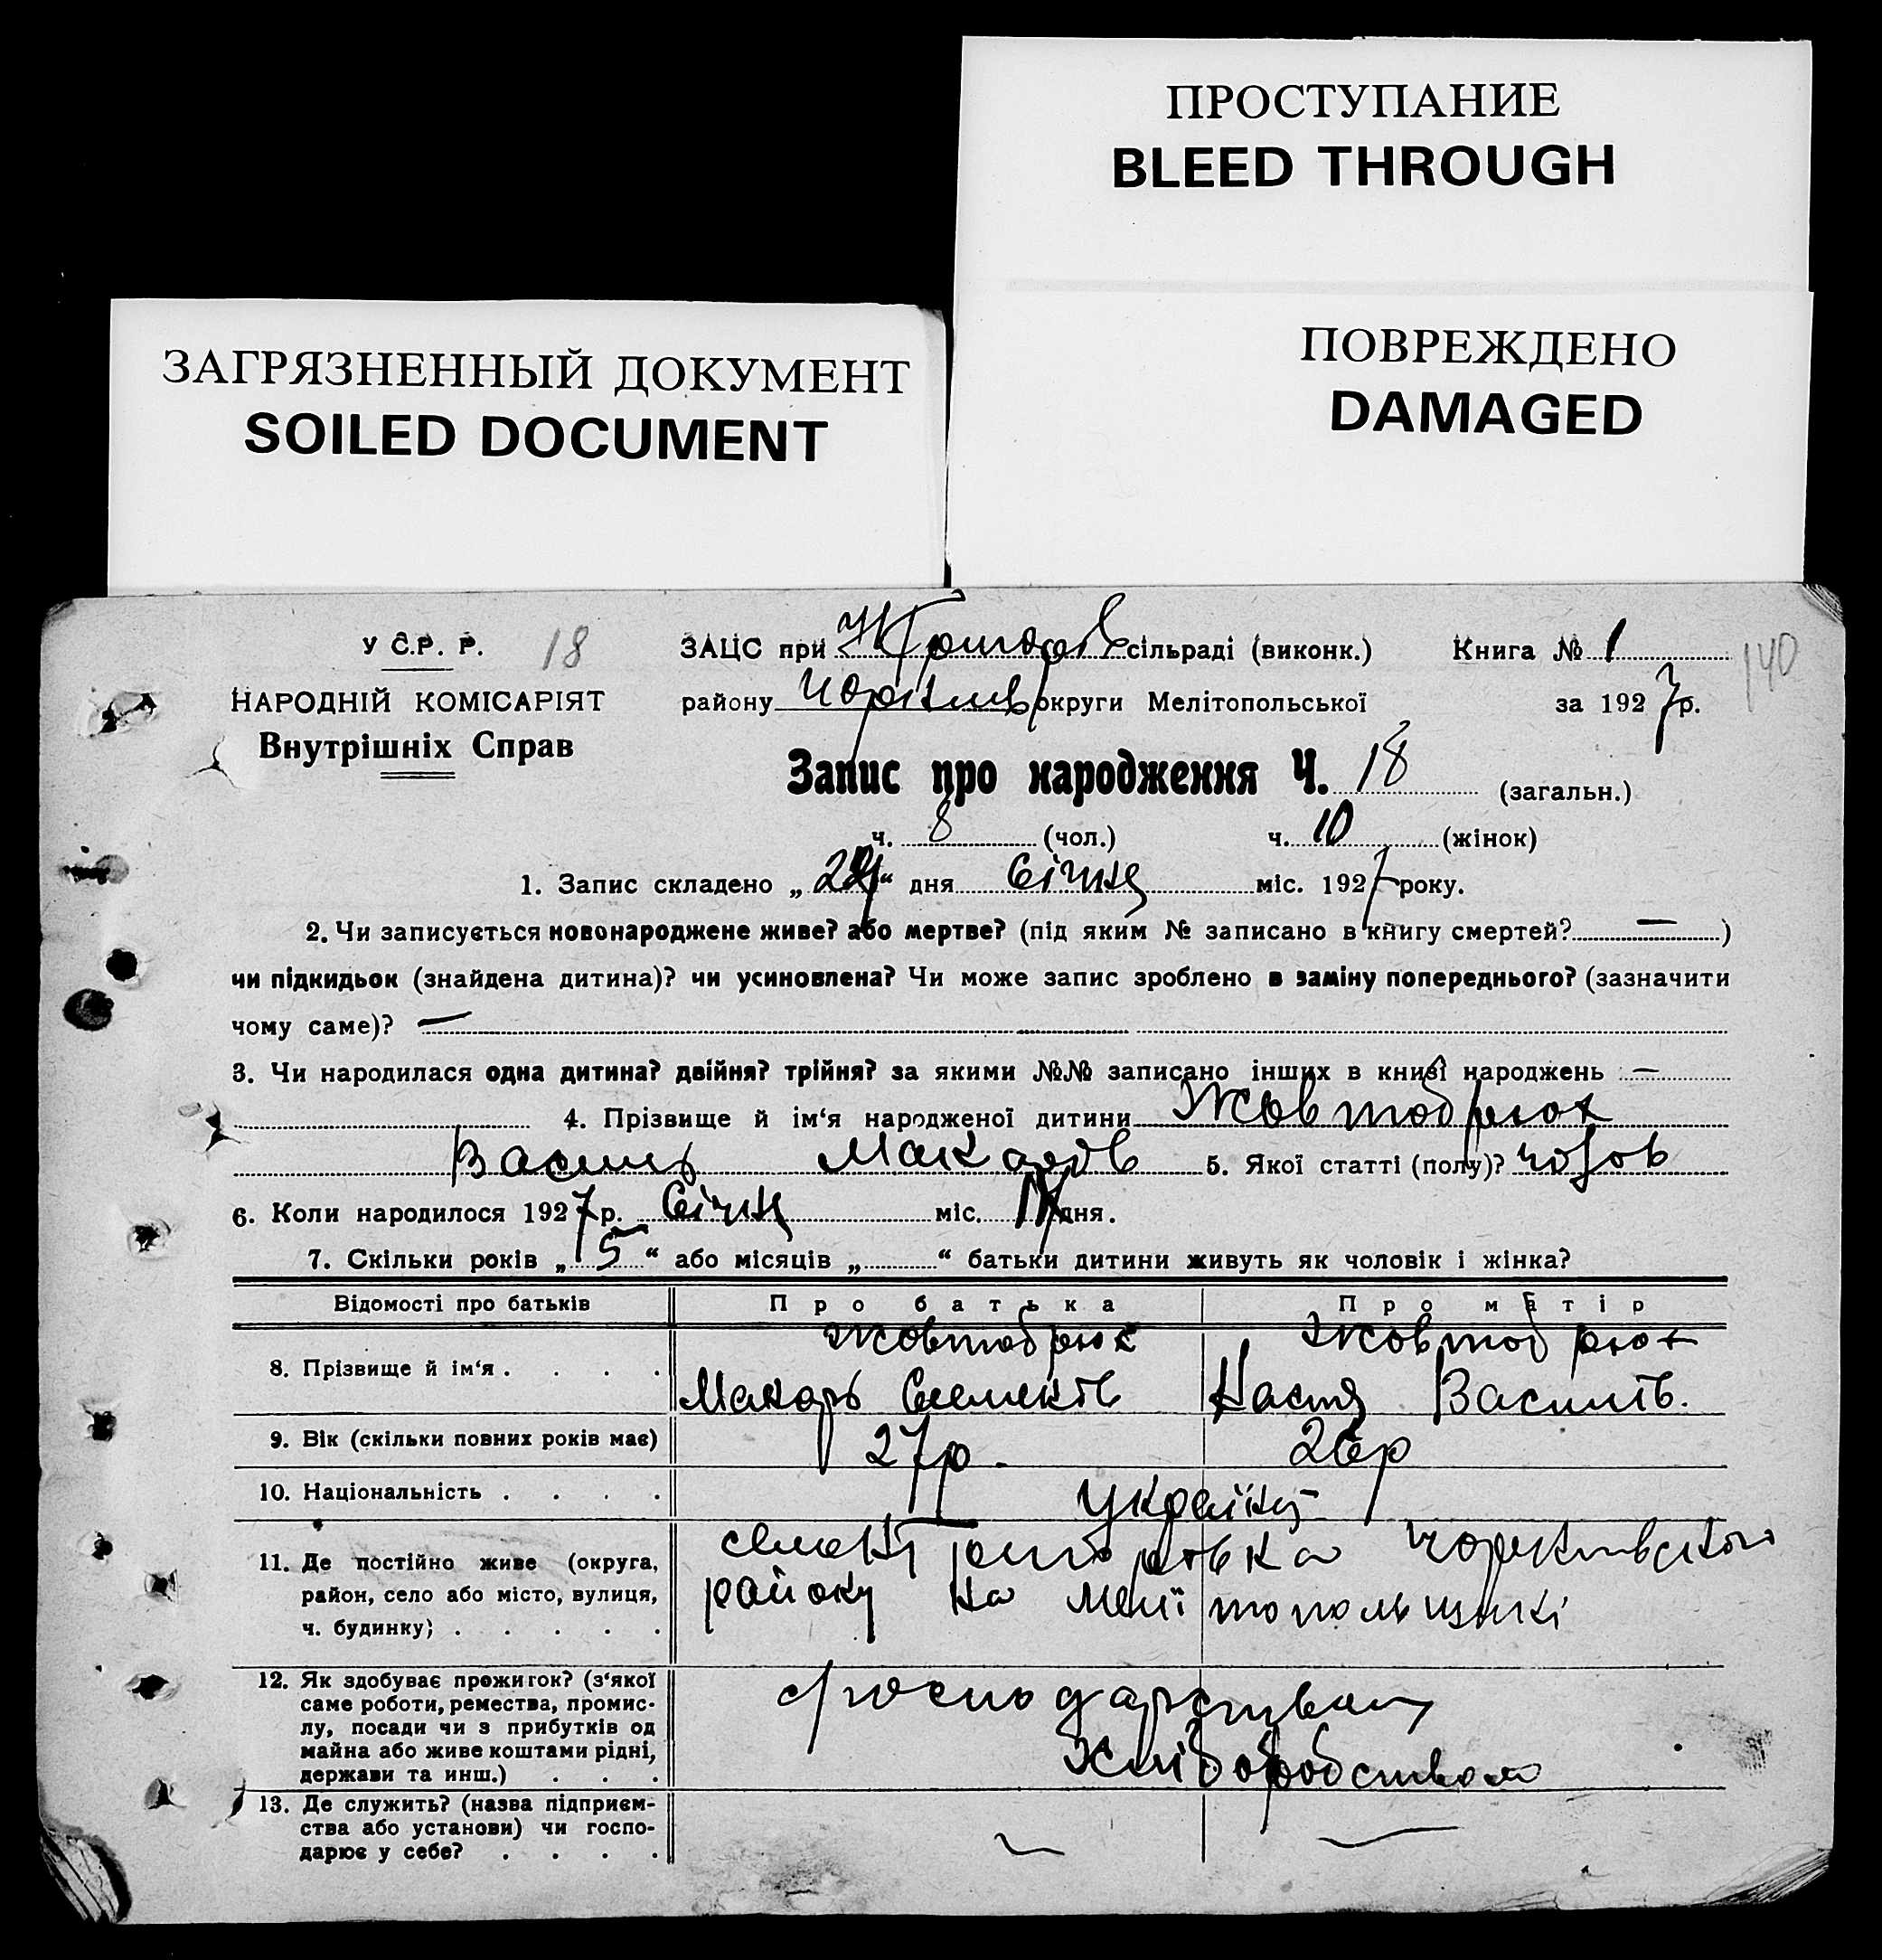 ПРОСТУПАНИЕ
BLEED THROUGH
ПОВРЕЖДЕНО
DAMAGED
ЗАГРЯЗНЕННЫЙ ДОКУМЕНТ
SOILED DOCUMENT
У С.Р. Р. 18 ЗАЦС при сільраді (виконк.) Книга № 1 140
НАРОДНІЙ КОМІСАРІЯТ району округи Мелітопольської за 1927 р.
Внутрішніх Справ
Запис про народження Ч. 18 (загальн.)
ч. 8 (чол.) ч. 10 (жінок)
1. Запис складено „ “ дня Січня міс. 1927 року.
2. Чи записується новонароджене живе? або мертве? (під яким № записано в книгу смертей? — )
чи підкидьок (знайдена дитина)? чи усиновлена? Чи може запис зроблено в заміну попереднього? (зазначити
чому саме)? —
3. Чи народилася одна дитина? двійня? трійня? за якими №№ записано інших в книзі народжень : —
4. Прізвище й ім‘я народженої дитини Жовтобрюх
Василь Макаров 5. Якої статті (полу)? чолов
6. Коли народилося 1927 р. Січня міс. дня.
7. Скільки років „ 5 “ або місяців „ “ батьки дитини живуть як чоловік і жінка?
Відомості про батьків Про батька Про матір
Жовтобрюх Жовтобрюх
8. Прізвище й ім‘я . . . .
Макарь Настя Василів.
9. Вік (скільки повних років має) 27 р. 26 р
10. Національність . . . . Україн
11. Де постійно живе (округа,
район, село або місто, вулиця, району на Мелітопольщині
ч. будинку; . . . . .
12. Як здобуває прожиток? (з‘якої
саме роботи, ремества, промис-
лу, посади чи з прибутків од
майна або живе коштами рідні, Хліборобством
держави та инш.) . . .
13. Де служить? (назва підприєм-
ства або установи) чи госпо-
дарює у себе? . . . .